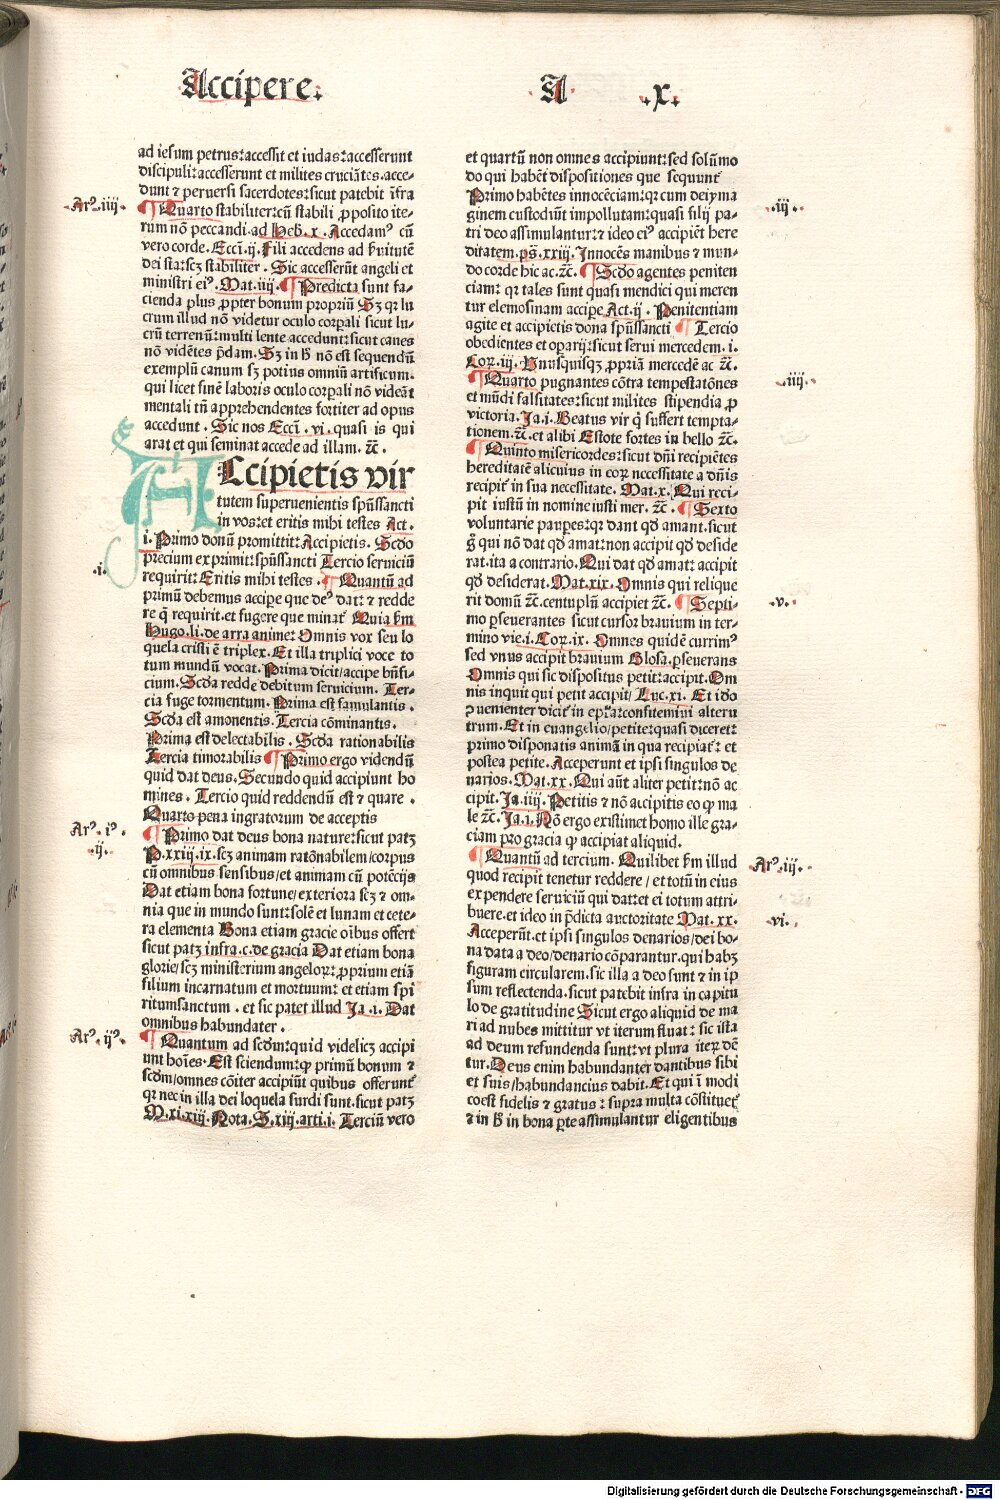 Accipere.
A
.x.
ad iesum petrus: accessit et iudas: accesserunt
discipuli: accesserunt et milites cruciātes. acce-
dunt ⁊ peruersi sacerdotes: sicut patebit īfra
Arꝰ.iiij.
¶ Quarto stabiliter: cū stabili ꝓposito ite-
rum nō peccandi. ad Heb. x. Accedamꝰ cū
vero corde. Eccī. ij. Fili accedens ad ẜuitutē
dei sta: scꝫ stabiliter. Sic accesserūt angeli et
ministri eiꝰ. Mat. iiij. ¶ Predicta sunt fa-
cienda plus ꝓpter bonum propriū Sꝫ qꝛ lu
crum illud nō videtur oculo corꝑali sicut lu-
crū terrenū: multi lente accedunt: sicut canes
nō vidētes p̄dam. Sꝫ in ħ nō est sequendū
exemplū canum sꝫ potius omniū artificum:
qui licet sine laboris oculo corꝑali nō videāt
mentali tn̄ apprehendentes fortiter ad opus
accedunt. Sic nos Eccī. vi. quasi is qui
arat et qui seminat accede ad illam. ⁊c̄.
ACcipietis vir
tutem superuenientis spūssancti
in vos: et eritis mihi testes Act.
i. Primo donū promittit: Accipietis. Scd̄o
precium exprimit: spūssancti Tercio seruiciū
.i.
requirit: Eritis mihi testes. ¶ Quantū ad
primū debemus acciꝑe que deꝰ dat: ⁊ redde
re q̄ requirit. et fugere que minat᷑ Quia ẜm
Hugo. li. de arra anime: Omnis vox seu lo
quela cristi ē triplex. Et illa triplici voce to
tum mundū vocat. Prima dicit/accipe bn̄fi-
cium. Scd̄a redde debitum seruicium. Ter-
cia fuge tormentum. Prima est famulantis.
Scd̄a est amonentis. Tercia cōminantis.
Prima est delectabilis. Scd̄a rationabilis
Tercia timorabilis ¶ Primo ergo videndū
quid dat deus. Secundo quid accipiunt ho
mines. Tercio quid reddendū est ⁊ quare.
Quarto pena ingratorum de acceptis
Arꝰ. iꝰ.
.ij.
¶ Primo dat deus bona nature: sicut patꝫ
P. xxiij. ix. scꝫ animam ratōnabilem/corpus
cū omnibus sensibus/et animam cū potēcijs
Dat etiam bona fortune/exteriora scꝫ ⁊ om-
nia que in mundo sunt: solē et lunam et cete-
ra elementa Bona etiam gracie oībus offert
sicut patꝫ infra. c. de gracia Dat etiam bona
glorie/scꝫ ministerium angeloꝝ: ꝓprium etiā
filium incarnatum et mortuum: et etiam spi
ritumsanctum. et sic patet illud Ja. i. Dat
omnibus habundater.
Arꝰ. ijꝰ.
¶ Quantum ad scd̄m: quid videlicꝫ accipi
unt hoīes. Est sciendum: ꝙ primū bonum ⁊
scd̄m/omnes cōiter accipiūt quibus offerunt᷑
qꝛ nec in illa dei loquela surdi sunt. sicut patꝫ
M. xi. xiij. Nota. S. xiij. arti. i. Terciū vero
et quartū non omnes accipiunt: sed solūmo
do qui habēt dispositiones que sequunt᷑
Primo habētes innocēciam: qꝛ cum dei yma
.iij.
ginem custodiūt impollutam: quasi filij pa-
tri deo assimulantur: ⁊ ideo eiꝰ accipiēt here
ditatem. ps̄. xxiij. Innocēs manibus ⁊ mun-
do corde hic ac. ⁊c̄. ¶ Scd̄o agentes peniten
ciam: qꝛ tales sunt quasi mendici qui meren
tur elemosinam accipe Act. ij. Penitentiam
agite et accipietis dona spūssancti ¶ Tercio
obedientes et oꝑarij: sicut serui mercedem. i.
Cor. iij. Vnusquisqꝫ ꝓpriā mercedē ac ⁊c̄.
.iiij.
¶ Quarto pugnantes cōtra tempestatōnes
et mūdi falsitates: sicut milites stipendia ꝓ
victoria. Ja. i. Beatus vir q̇ suffert tempta-
tionem. ⁊c̄. et alibi Estote fortes in bello ⁊c̄.
¶ Quinto misericordes: sicut dn̄i recipiētes
hereditatē alicuius in coꝝ necessitate a dn̄is
recipit᷑ in sua necessitate. Mat. x. Qui reci-
pit iustū in nomine iusti mer. ⁊c̄. ¶ Sexto
voluntarie pauꝑes: qꝛ dant qd̄ amant. sicut
g̊ qui nō dat qd̄ amat: non accipit qd̄ deside
rat. ita a contrario. Qui dat qd̄ amat: accipit
qd̄ desiderat. Mat. xix. Omnis qui relique
.v.
rit domū ⁊c̄. centuplū accipiet ⁊c̄. ¶ Septi-
mo ꝑseuerantes sicut cursor brauium in ter-
mino vie. i. Cor. ix. Omnes quidē currimꝰ
sed vnus accipit brauium Glosa. ꝑseuerans
Omnis qui sic dispositus petit: accipit. Om
nis inquit qui petit accipit/ Luc. xi. Et ido
ꝯuenienter dicit᷑ in epr̄a: confitemini alteru
trum. Et in euangelio/petite: quasi diceret:
primo disponatis animā in qua recipiat᷑: et
postea petite. Acceperunt et ipsi singulos de
narios. Mat. xx. Qui aūt aliter petit: nō ac
cipit. Ja. iiij. Petitis ⁊ nō accipitis eo ꝙ ma
le ⁊c̄. Ja. i. Nō ergo existimet homo ille gra-
ciam pro gracia ꝙ accipiat aliquid.
Arꝰ. iij.
¶ Quantū ad tercium. Quilibet ẜm illud
quod recipit tenetur reddere / et totū in eius
expendere seruiciū qui dat: et ei totum attri-
.vi.
buere. et ideo in p̄dicta auctoritate Mat. xx.
Acceperūt. et ipsi singulos denarios/dei bo-
na data a deo/denario cōparantur. qui habꝫ
figuram circularem. sic illa a deo sunt ⁊ in ip
sum reflectenda. sicut patebit infra in capitu
lo de gratitudine Sicut ergo aliquid de ma
ri ad nubes mittitur vt iterum fluat: sic ista
ad deum refundenda sunt: vt plura iteꝝ dē
tur. Deus enim habundanter dantibus sibi
et suis/habundancius dabit. Et qui ī modi
co est fidelis ⁊ gratus: supra multa cōstituet᷑
⁊ in ħ in bona ꝑte assimulantur eligentibus
Digitalisierung gefördert durch die Deutsche Forschungsgemeinschaft - DFG